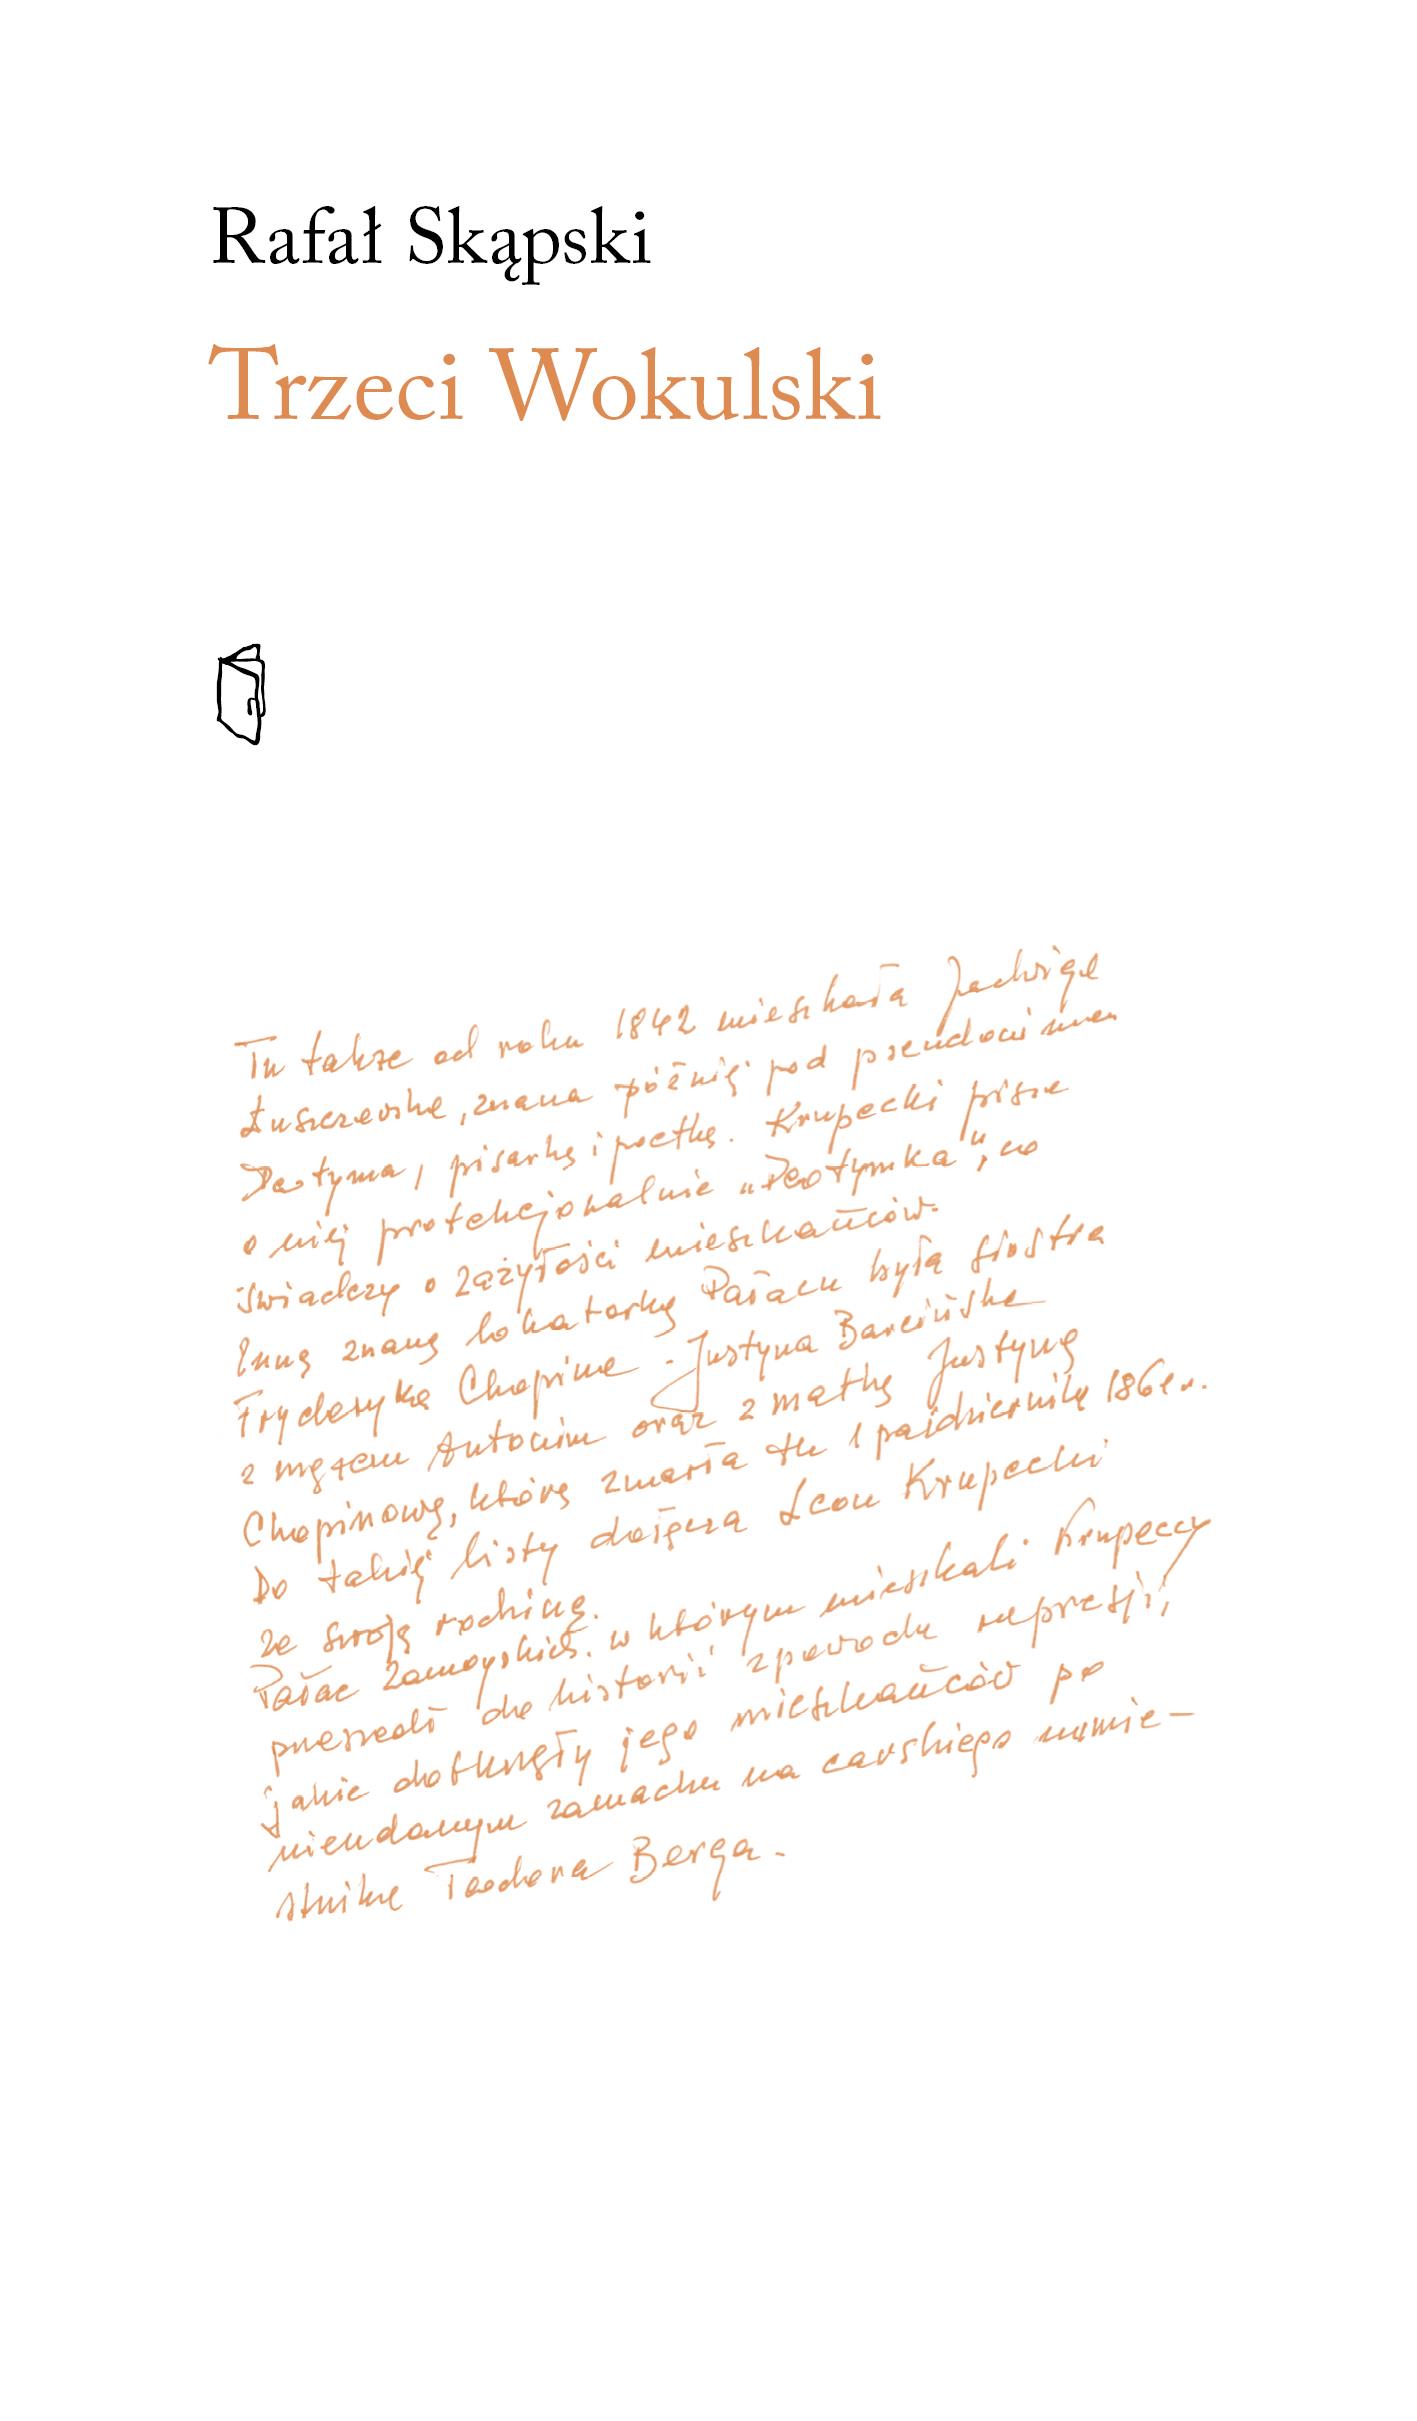 Rafał Skąpski
Trzeci Wokulski
Tu także od roku 1842 mieszkała Jadwiga
Łuszczewska, znana później pod pseudonimem
Deotyma, pisarką i poetką. Krupecki pisze
o niej protekcjonalnie „Deotymka”, co
świadczy o zażyłości mieszkańców.
Inną znaną lokatorką Pałacu była siostra
Fryderyka Chopina - Justyna Barcińska
z mężem Antonim oraz z matką Justyną
Chopinową, która zmarła tu 1 października 1861 r.
Do takiej listy dołącza Leon Krupecki
ze swoją rodziną.
Pałac Zamoyskich, w którym mieszkali Krupeccy
przeszedł do historii z powodu represji,
jakie dotknęły jego mieszkańców po
nieudanym zamachu na carskiego namie-
stnika Teodora Berga.